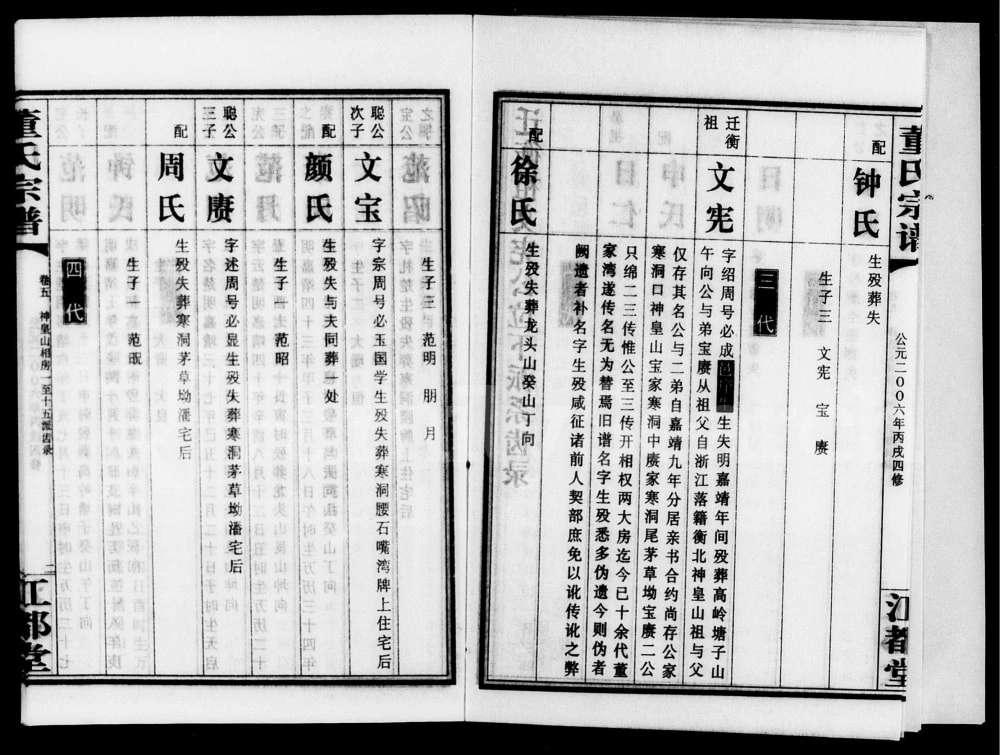 董氏宗谱
公元二00六年丙戌四修
江都堂
配
钟氏
生殁葬失
生子三 文宪 宝 赓
三代
迁衡祖
文宪
字绍周号必成
生失明嘉靖年间殁葬高岭塘子山
午向公与弟宝赓从祖父自浙江落籍衡北神皇山祖与父
仅存其名公与二弟自嘉靖九年分居亲书合约尚存公家
寒洞口神皇山宝家寒洞中赓家寒洞尾茅草坳宝赓二公
只绵二三传惟公至三传开相权两大房迄今已十余代董
家湾遂传名无为替焉旧谱名字生殁悉多伪遗今则伪者
阙遗者补名字生殁咸征诸前人契部庶免以讹传讹之弊
配
徐氏
生殁失葬龙头山癸山丁向
生子三 范明 朋 月
聪公次子
文宝
字宗周号必玉国学生殁失葬寒洞腰石嘴湾牌上住宅后
配
颜氏
生殁失与夫同葬一处
生子一 范昭
聪公三子
文赓
字述周号必显生殁失葬寒洞茅草坳潘宅后
配
周氏
生殁失葬寒洞茅草坳潘宅后
生子一 范
四代
董氏宗谱
卷五 神皇山相房一至十五派齿录
二
江都堂